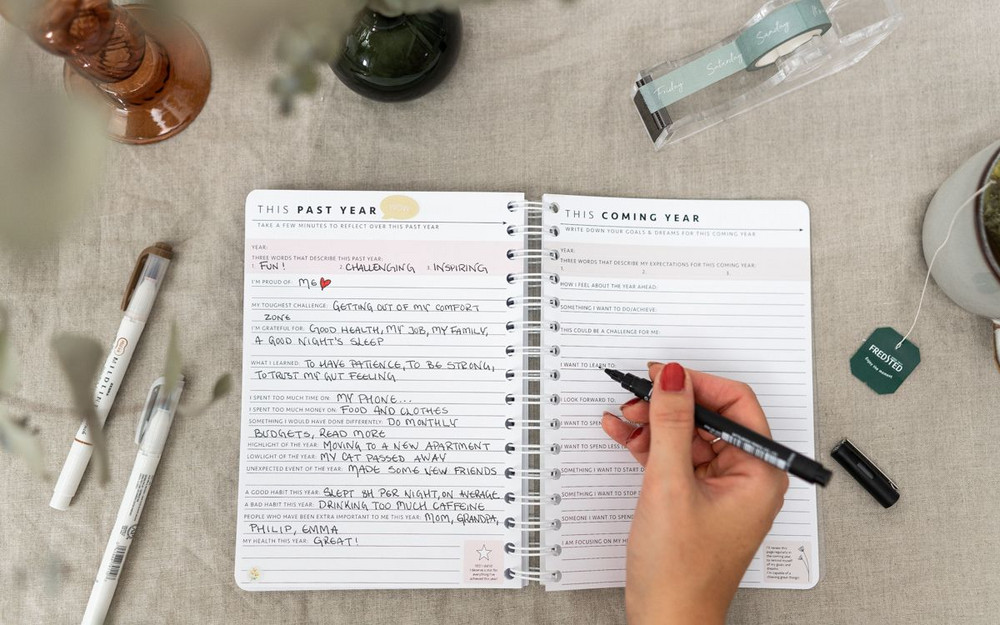 THIS PAST YEAR
TAKE A FEW MINUTES TO REFLECT OVER THIS PAST YEAR
YEAR:
THREE WORDS THAT DESCRIBE THIS PAST YEAR:
1. FUN! 2. CHALLENGING 3. INSPIRING
I'M PROUD OF: ME
MY TOUGHEST CHALLENGE: GETTING OUT OF MY COMFORT
ZONE
I'M GRATEFUL FOR: GOOD HEALTH, MY JOB, MY FAMILY,
A GOOD NIGHT'S SLEEP
WHAT I LEARNED: TO HAVE PATIENCE, TO BE STRONG,
TO TRUST MY GUT FEELING
I SPENT TOO MUCH TIME ON: MY PHONE...
I SPENT TOO MUCH MONEY ON: FOOD AND CLOTHES
SOMETHING I WOULD HAVE DONE DIFFERENTLY: DO MONTHLY
BUDGETS, READ MORE
HIGHLIGHT OF THE YEAR: MOVING TO A NEW APARTMENT
LOWLIGHT OF THE YEAR: MY CAT PASSED AWAY
UNEXPECTED EVENT OF THE YEAR: MADE SOME NEW FRIENDS
A GOOD HABIT THIS YEAR: SLEPT 8H PER NIGHT, ON AVERAGE
A BAD HABIT THIS YEAR: DRINKING TOO MUCH CAFFEINE
PEOPLE WHO HAVE BEEN EXTRA IMPORTANT TO ME THIS YEAR: MOM, GRANDPA,
PHILIP, EMMA
MY HEALTH THIS YEAR: GREAT!
THIS COMING YEAR
WRITE DOWN YOUR GOALS & DREAMS FOR THIS COMING YEAR
YEAR:
THREE WORDS THAT DESCRIBE MY EXPECTATIONS FOR THIS COMING YEAR:
1. 2. 3.
HOW I FEEL ABOUT THE YEAR AHEAD:
SOMETHING I WANT TO DO/ACHIEVE:
THIS COULD BE A CHALLENGE FOR ME:
I WANT TO LEARN TO:
I LOOK FORWARD TO:
I WANT TO SPEND
I WANT TO SPEND LESS
SOMETHING I WANT TO START
SOMETHING I WANT TO STOP
SOMEONE I WANT TO SPEND
I AM FOCUSING ON MY
Friday Saturday Sunday
FREDSTED
MILDLINER